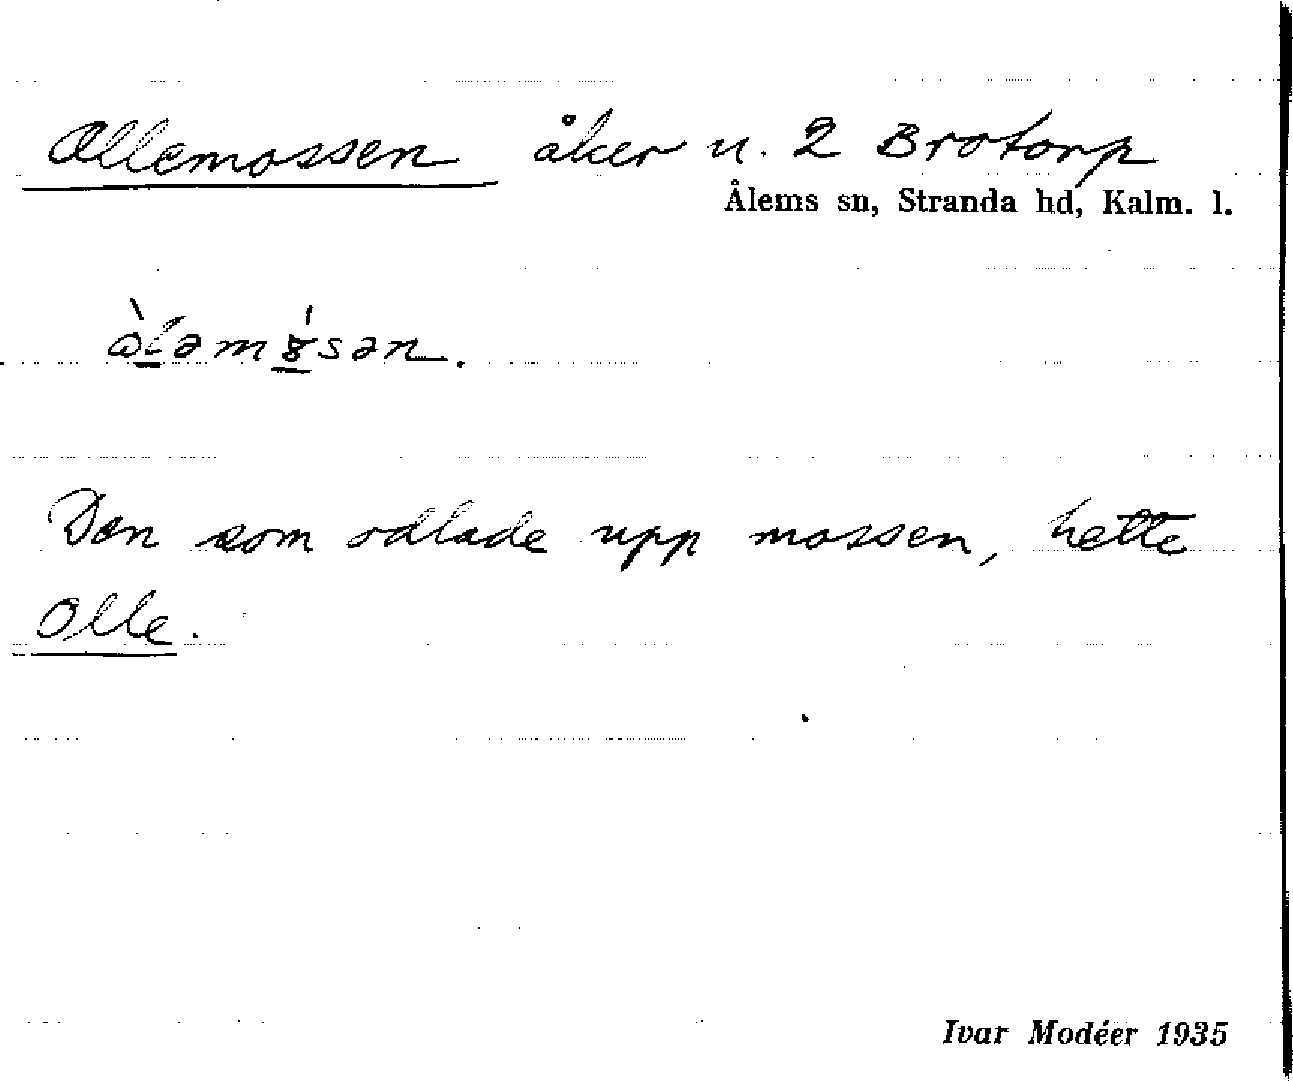 Ollemossen åker u. 2 Brotorp
Ålems sn, Stranda hd, Kalm. l.
Den som odlade upp mossen, hette
Olle.
Ivar Modéer 1935